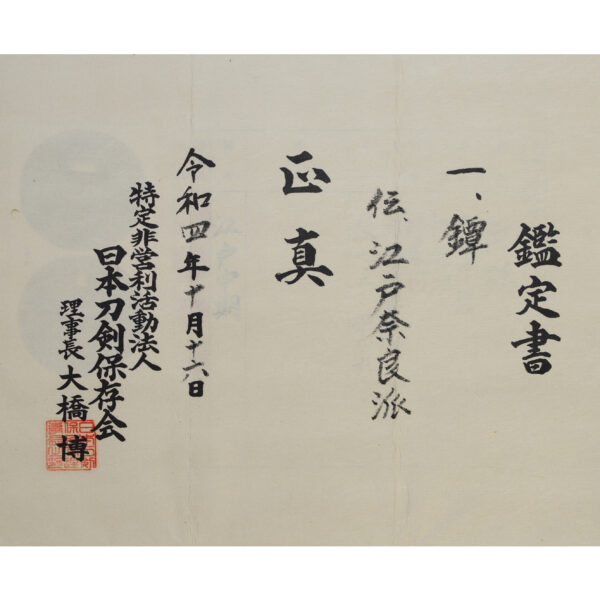 鑑定書
一、鐔
伝、江戸奈良派
正真
令和四年十月十六日
特定非営利活動法人
日本刀剣保存会
理事長 大橋 博